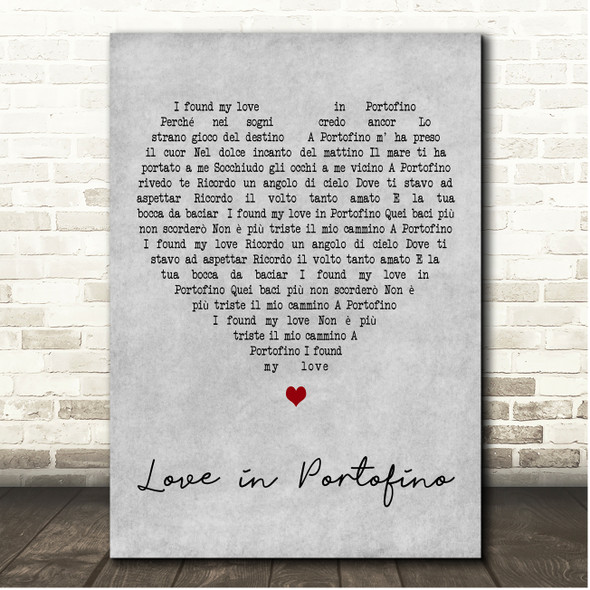 I found my love in Portofino
Perché nei sogni credo ancor Lo
strano gioco del destino A Portofino m' ha preso
il cuor Nel dolce incanto del mattino Il mare ti ha
portato a me Socchiudo gli occhi a me vicino A Portofino
rivedo te Ricordo un angolo di cielo Dove ti stavo ad
aspettar Ricordo il volto tanto amato E la tua
bocca da baciar I found my love in Portofino Quei baci più
non scorderò Non è più triste il mio cammino A Portofino
I found my love Ricordo un angolo di cielo Dove ti
stavo ad aspettar Ricordo il volto tanto amato E la
tua bocca da baciar I found my love in
Portofino Quei baci più non scorderò Non è
più triste il mio cammino A Portofino
I found my love Non è più
triste il mio cammino A
Portofino I found
my love
Love in Portofino